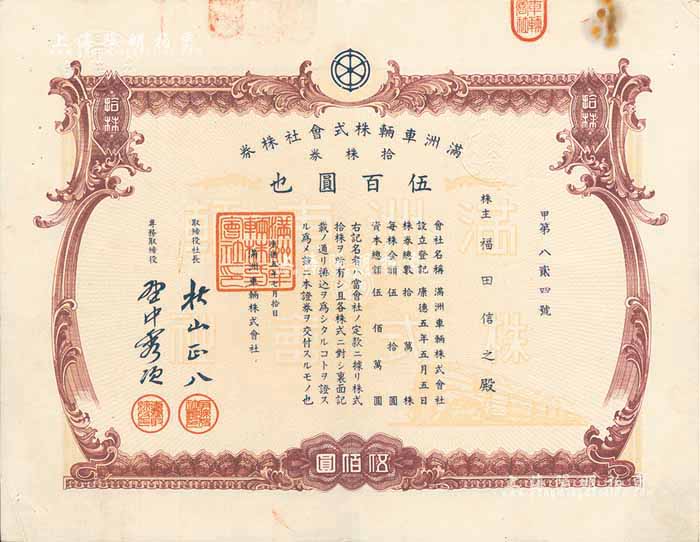 滿洲車輛株式會社株券
拾株券
伍百圓也
拾株
拾株
甲第八貳四號
株主 福田信之殿
會社名稱 滿洲車輛株式會社
設立登記 康德五年五月五日
株券總數 拾萬株
每株金額 伍拾圓
資本總額 伍佰萬圓
右記名者ハ當會社ノ定款ニ據リ株式
拾株ヲ所有シ且各株式ニ對シ裏面記
載ノ通リ拂込ヲ爲シタルコトヲ證ス
ル爲メ該ニ本證券ヲ交付スルモノ也
滿洲車輛株式會社
取締役社長
秋山正八
專務取締役
伍佰圓